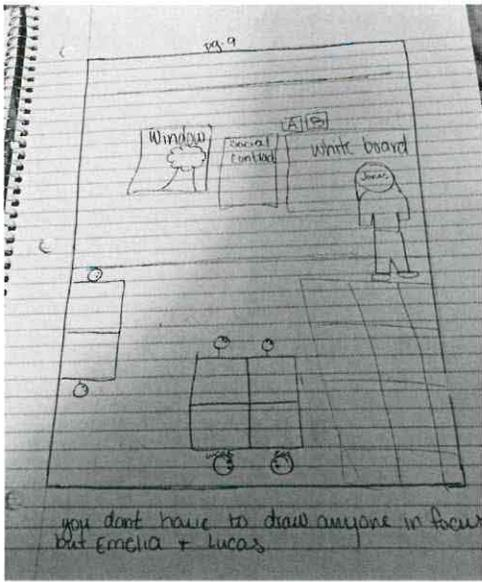 pg. 9
A B
Window
Social
white board
Jones
you dont have to draw anyone in focus
but Emelia + Lucas